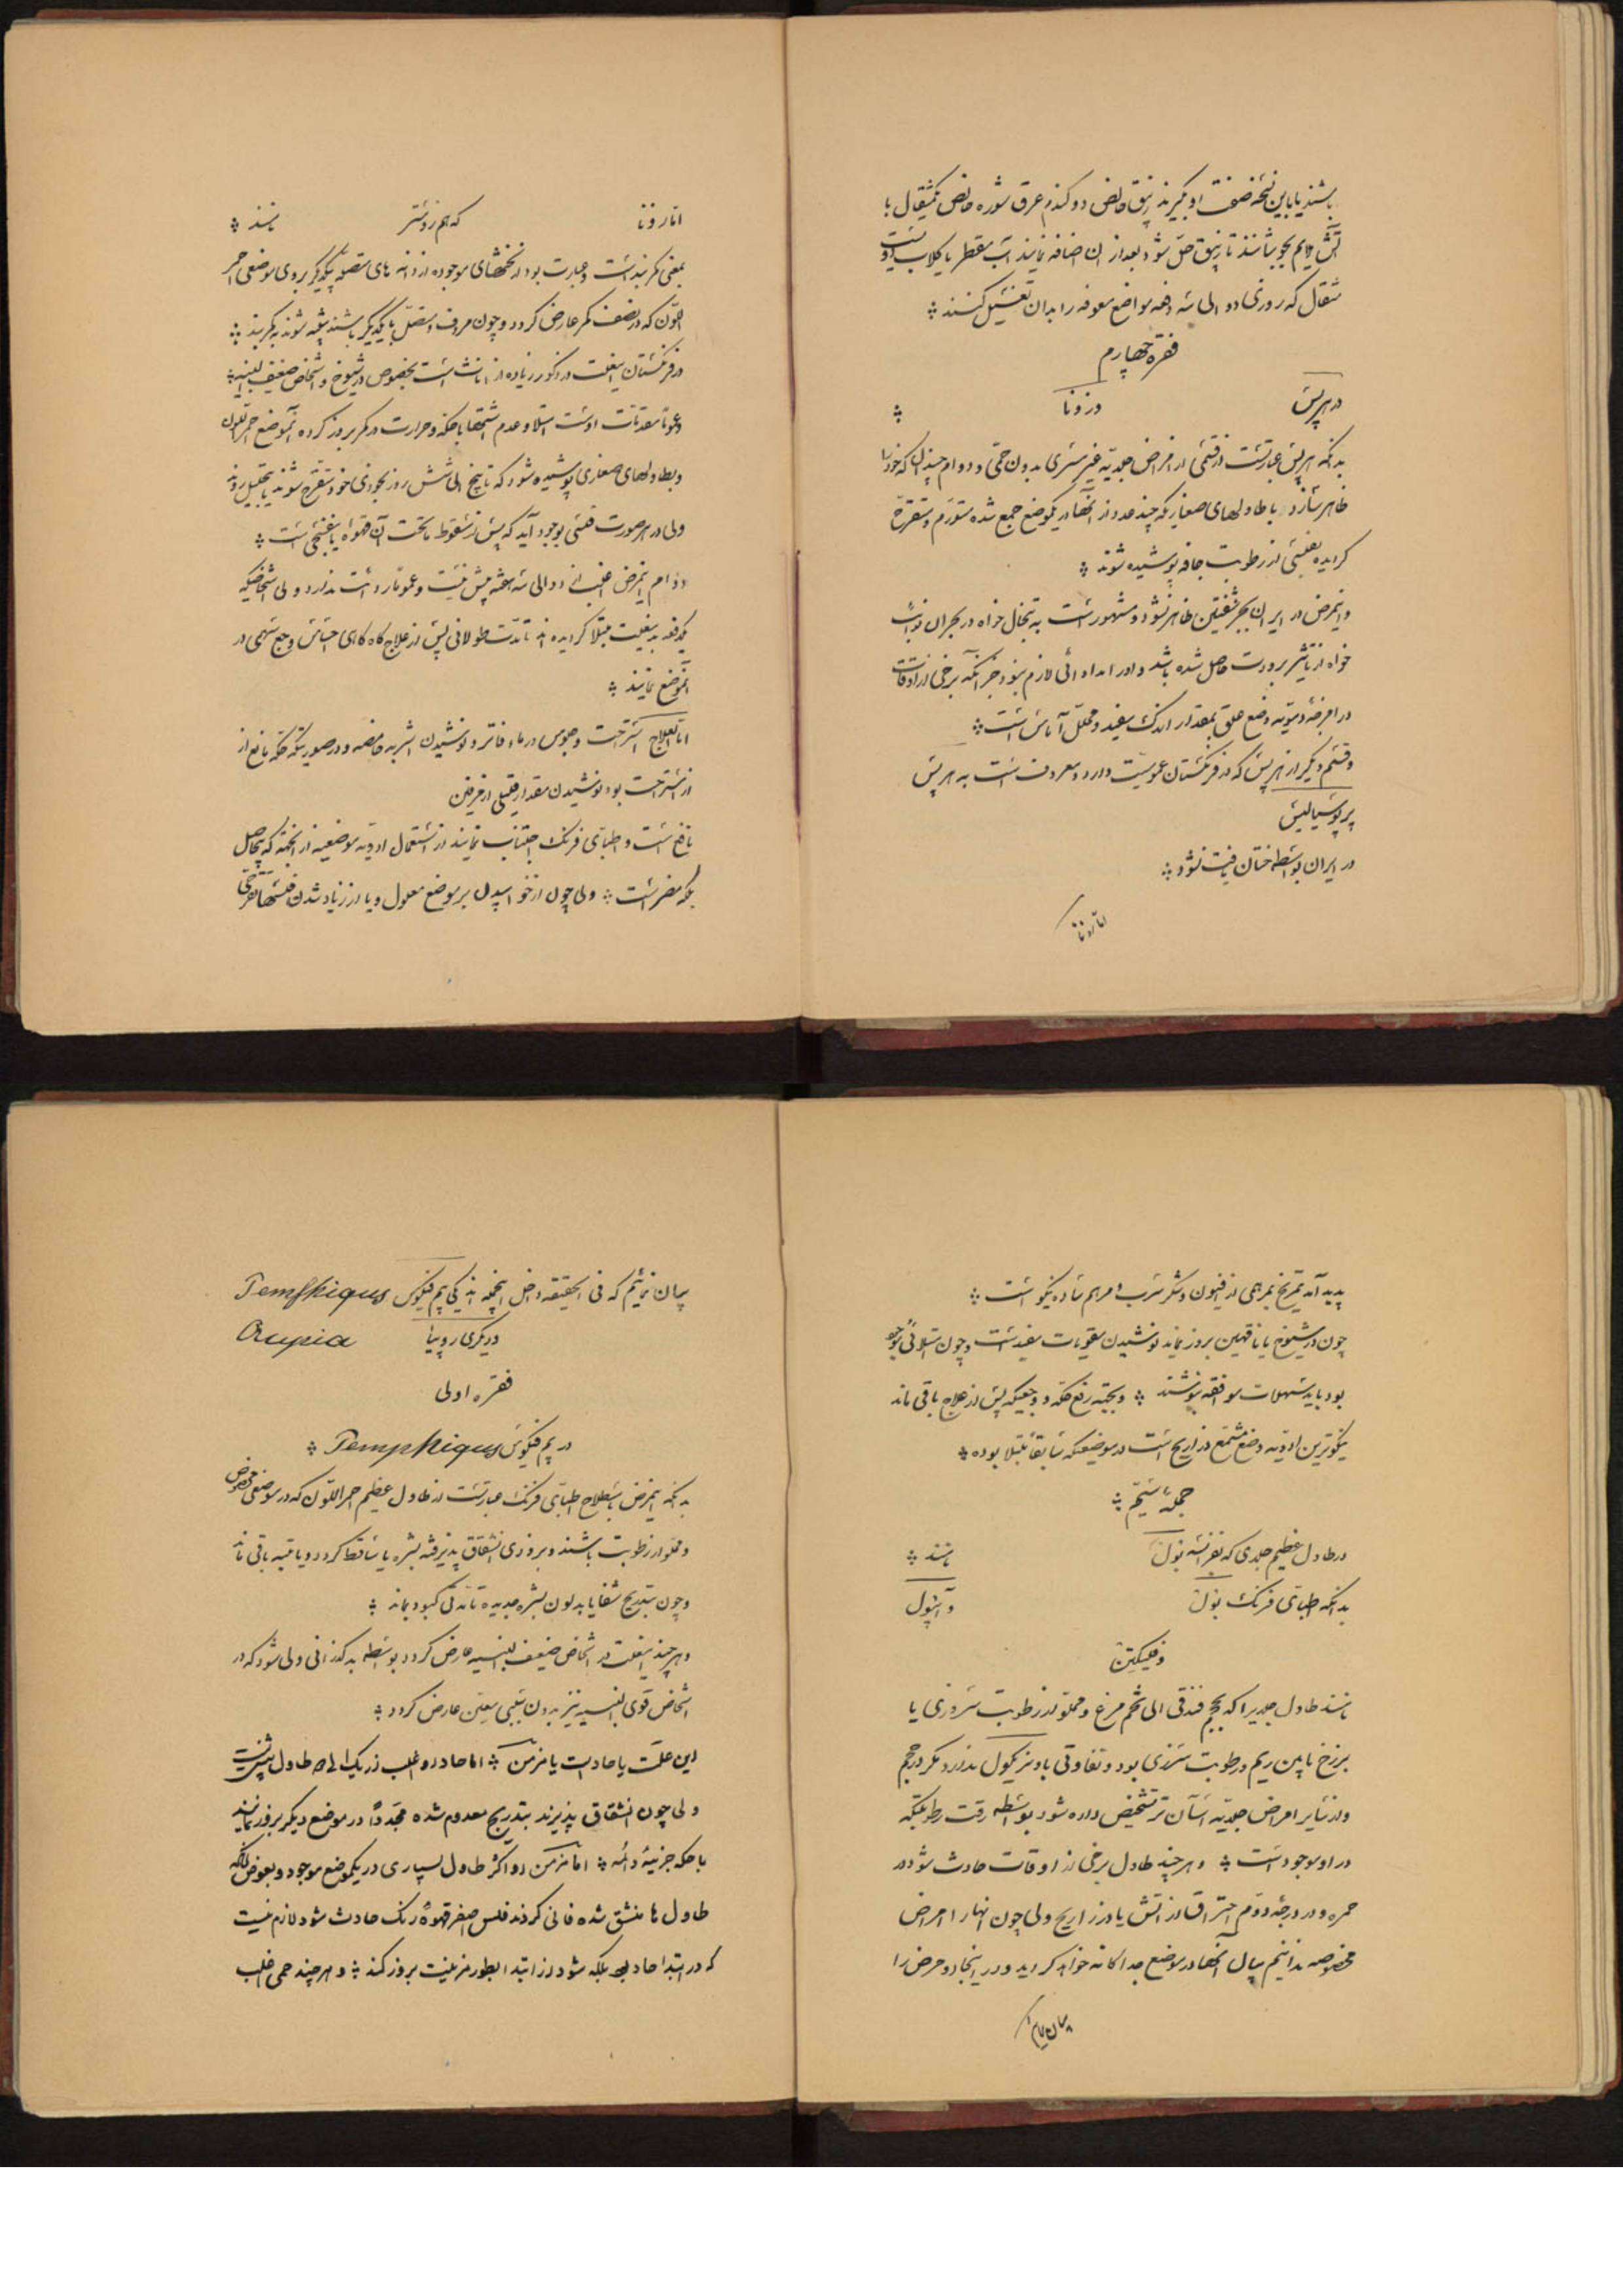 باشند یا باین نسخه ضعف او بگیرند زیبق خالص دو گندم عرق شوره خالص یکمثقال با
آتش ملایم بجوشانند تا زیبق حل شود بعد از ان اضافه نمایند آب مقطر یا گلاب بیست و دو
مثقال که روزی دو الی سه دفعه مواضع معوفه را بدان تغسیل کنند ⁘
فقره چهارم
در هرپس در زونا ⁘
بدانکه هرپس عبارتست از قسمی از امراض جلدیه غیر مسری بدون حمی و دوام چندان که خود را
ظاهر سازد با طاولهای صغار که چند عدد از آنها در یکموضع جمع شده متورم و متقرح
گردیده بفلسی از رطوبت جافه پوشیده شوند ⁘
و اینمرض در ایران بجز شفتین ظاهر نشود و مشهور است به تبخال خواه در بحران نوائب
خواه از تأثیر برودت حاصل شده باشد و او را مداوائی لازم نبود جز آنکه برخی از اوقات
در امزجه دمویه وضع علق بمقدار اندک مفید و محلل آماس است ⁘
و قسم دیگر از هرپس که در فرنگستان عمومیت دارد و معروف است به هرپس
پرپوسیالیس
در ایران بواسطه ختان یافت نشود ⁘
اما زونا
اما زونا که هم زوستر نامند ⁘
بمعنی کمربند است و عبارت بود از نخشهای موجوده از دانه های متصل بیکدیگر بروی موضعی احمر
اللون که در نصف کمر عارض گردد و چون مردف و متصل بایکدیگر باشند شبیه شوند به کمربند ⁘
در فرنگستان اینعلت در ذکور زیاده از اناث است بخصوص در شیوخ و اشخاص ضعیف البنیه ⁘
و عموما مقدمات اوست امتلا و عدم اشتها با حکه و حرارت در کمر بروز کرده آنموضع احمراللون
و بطاولهای صغاری پوشیده شود که تا پنج الی شش روز بخودی خود متقرح شوند یا بتحلیل روند
ولی در هر صورت قشری بوجود آید که پس از سقوط ماتحت آن قهوه یا بنفشجی است ⁘
دوام اینمرض اغلب از دو الی سه هفته بیش نیست و عموما ردائت ندارد ولی اشخاصیکه
یکدفعه بدینعلت مبتلا گردیده اند تا مدت طولانی پس از علاج گاه گاهی احساس وجع سهمی در
آنموضع نمایند ⁘
اما العلاج استراحت و جلوس در ماء فاتر و نوشیدن اشربه حامضه و در صورتیکه حکه مانع از
از استراحت بود نوشیدن مقدار قلیلی از مرفین
نافع است و اطبای فرنگ اجتناب نمایند از استعمال ادویه موضعیه از انجهة که بیحاصل
بلکه مضر است ⁘ ولی چون از خوابیدن بر موضع معلول و یا از زیاد شدن فلسها تقرحی
پدید آمد تمریخ بمرهمی از افیون و شکر سرب و مرهم ساده نیکو است ⁘
چون در شیوخ یا ناقهین بروز نماید نوشیدن مقویات مفید است و چون امتلائی موجود
بود باید مسهلات موافقه بنوشند ⁘ و بجهة رفع حکه و وجعیکه پس از علاج باقی ماند
نیکوترین ادویه وضع مشمع ذراریح است در موضعیکه سابقا مبتلا بوده ⁘
جمله ششم ⁘
در طاول عظیم جلدی که بفرانسه بول نامند ⁘
بدانکه اطبای فرنگ بول و آنپول
و فلیکتن
نامند طاول جلدیرا که بحجم فندقی الی تخم مرغ و مملو از رطوبت سروزی یا
برزخ مابین ریم و رطوبت سروزی بود و تفاوتی با وزیکول ندارد مگر در حجم
و از سایر امراض جلدیه آسان تر تشخیص داده شود بواسطه رقت رطوبتیکه
در او موجود است ⁘ و هر چند طاول برخی از اوقات حادث شود در
حمره و در درجه دوم احتراق از آتش یا در ذراریح ولی چون انها را امراض
مخصوصه ندانیم بیان آنها در موضع جداگانه خواهد گردید و در اینجا دو مرض را
بیان نمائیم
بیان نمائیم که فی الحقیقه داخل اینجمله اند یکی پم فیکوس Pemphiqus
دیگری روپیا Orupia
فقره اولی
در پم فیکوس Pemphiqus ⁘
بدانکه اینمرض باصطلاح اطبای فرنگ عبارتست از طاول عظیم احمر اللون که در موضعی مخصوص
و مملو از رطوبت باشند و بزودی انشقاق پذیرفته بشره یا ساقط گردد و یا بقیه باقی ماند
و چون بتدریج شفا یابد لون بشره جدیده تا مدتی کبود بماند ⁘
و هر چند اینعلت در اشخاص ضعیف البنیه عارض گردد بواسطه بدگذرانی ولی شود که در
اشخاص قوی البنیه نیز بدون سببی معین عارض گردد ⁘
این علت یا حاد است یا مزمن ⁘ اما حاد در او اغلب از یک الی طاول بیش نیست
ولی چون انشقاق پذیرند بتدریج معدوم شده مجددا در موضع دیگر بروز نمایند
با حکه جزئیه دائمه ⁘ اما مزمن در او اکثر طاول بسیاری در یکموضع موجود و بعوض آنکه
طاول ها منشق شده فانی گردند فلس اصفر قهوه رنگ حادث شود لازم نیست
که در ابتدا حاد بود بلکه شود از ابتدا بطور مزمنیت بروز کند ⁘ و هر چند حمی اغلب